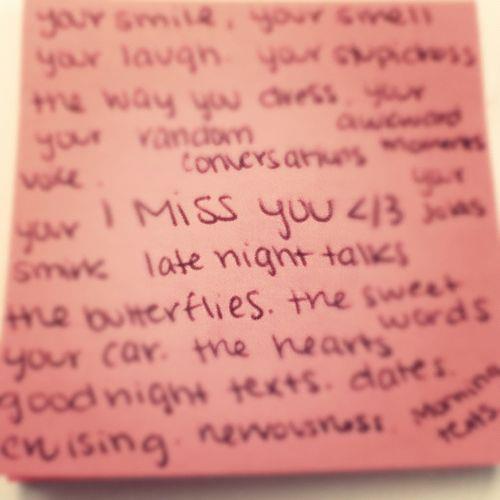 your smile. your smell
your laugh. your stupidness
the way you dress. your
your random awkward
conversations moments
voice. your
your I Miss you </3 jokes
smirk late night talks
the butterflies. the sweet
words
your car. the hearts
goodnight texts. dates.
cruising. nervousness. Morning
texts.